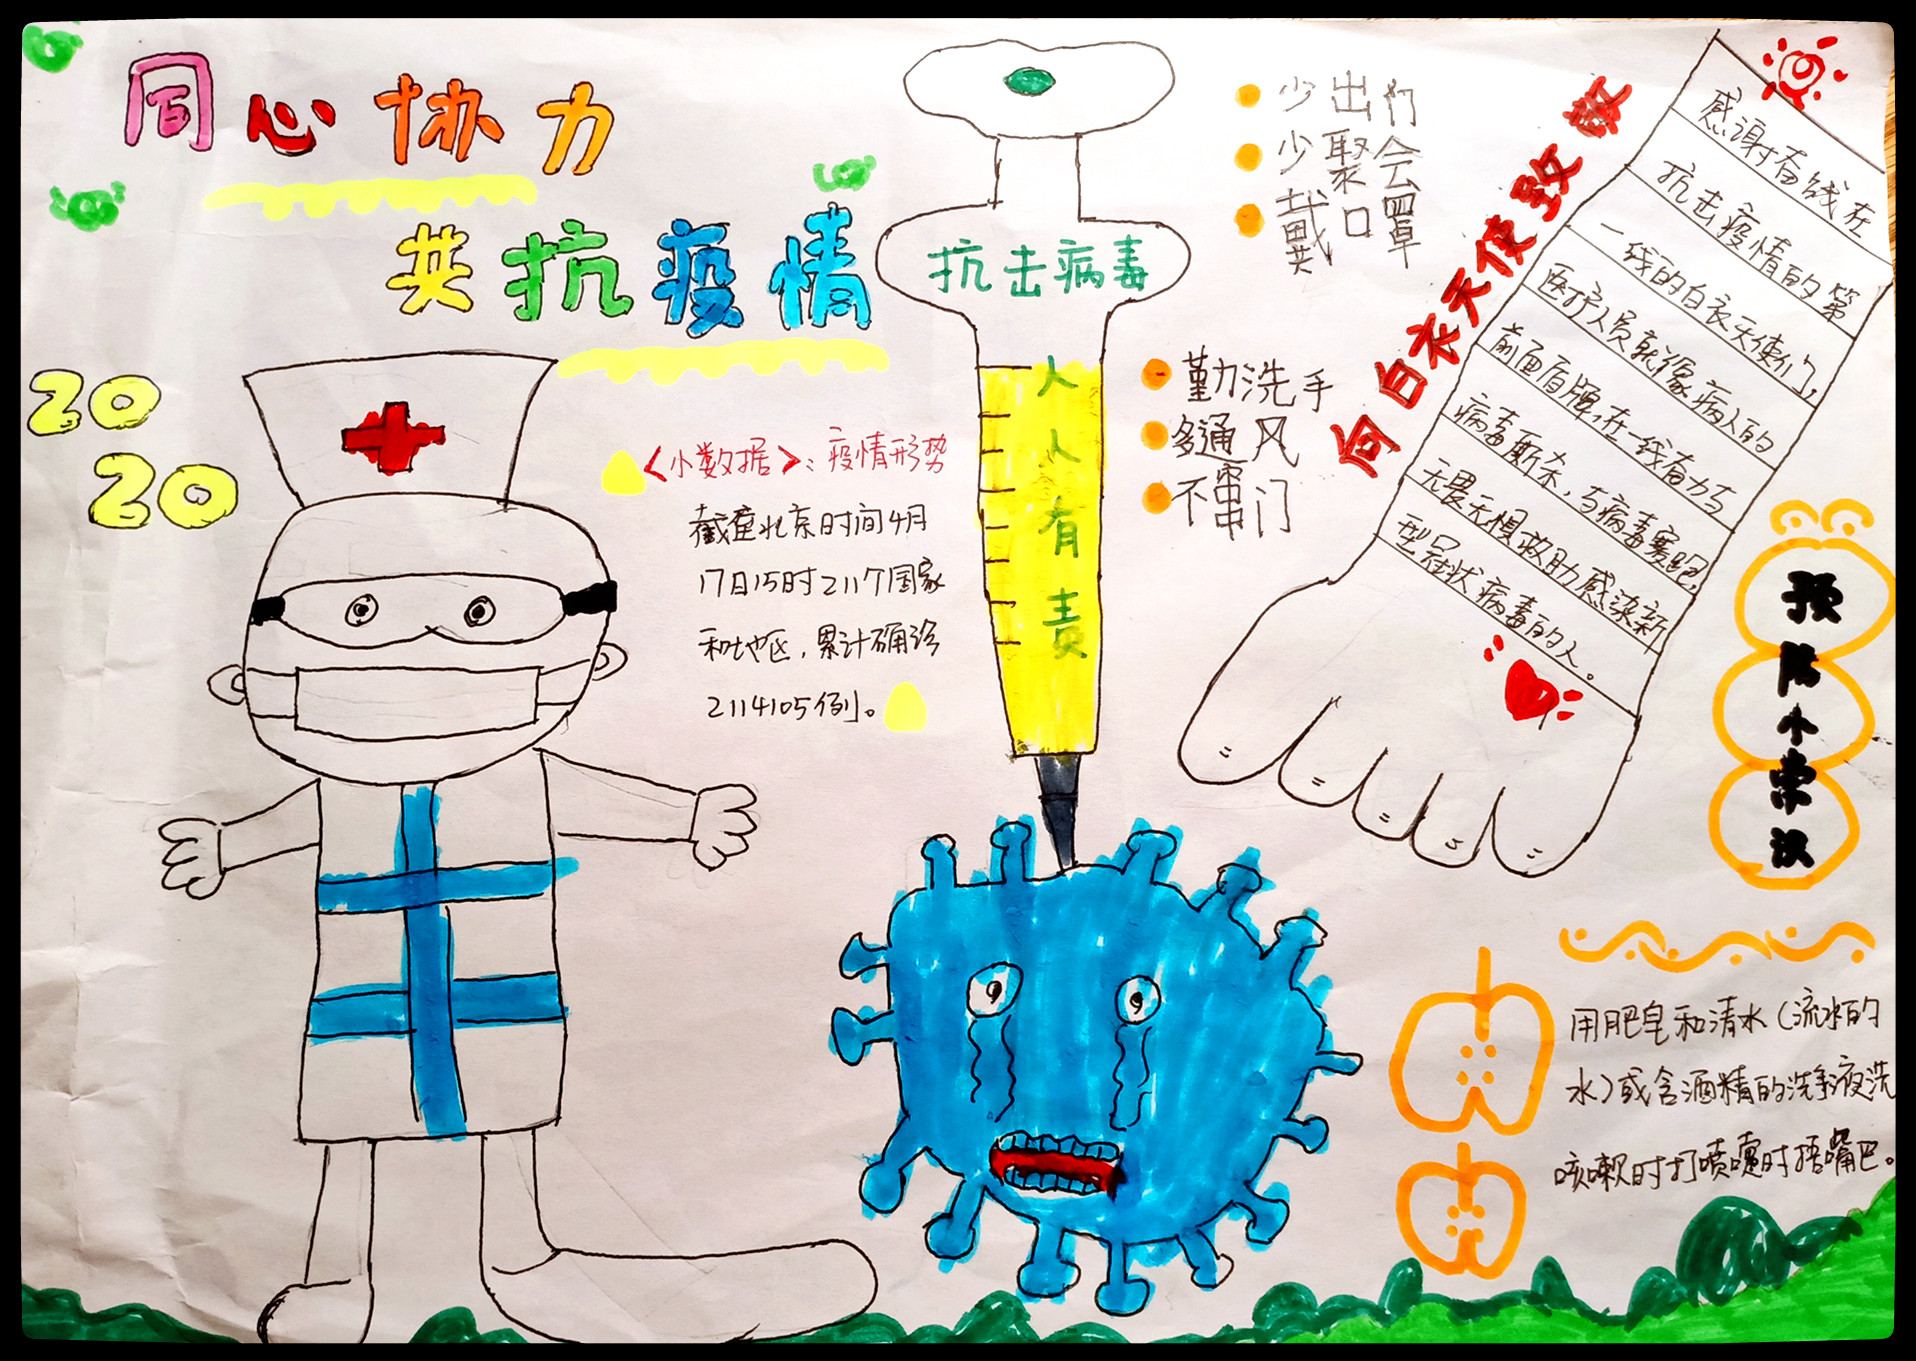 同心协力
共抗疫情
20
20
<小数据>：疫情形势
截至北京时间4月
17日15时211个国家
和地区，累计确诊
2114105例。
抗击病毒
人人有责
少出门
少聚会
戴口罩
勤洗手
多通风
不窜门
向白衣天使致敬
感谢奋战在
抗击疫情的第
一线的白衣天使们，
医护人员就像病人的
前面盾牌，在一线奋力与
病毒厮杀，与病毒赛跑，
无畏无惧救助感染新
型冠状病毒的人。
预防小常识
用肥皂和清水（流水的
水）或含酒精的洗手液洗
咳嗽时打喷嚏时捂嘴巴。